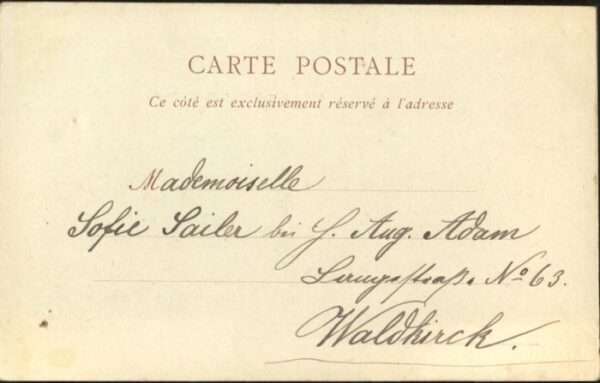 CARTE POSTALE
Ce côté est exclusivement réservé à l'adresse
Mademoiselle
Sofie Sailer bei H. Aug. Adam
Langestraße No 63.
Waldkirck.